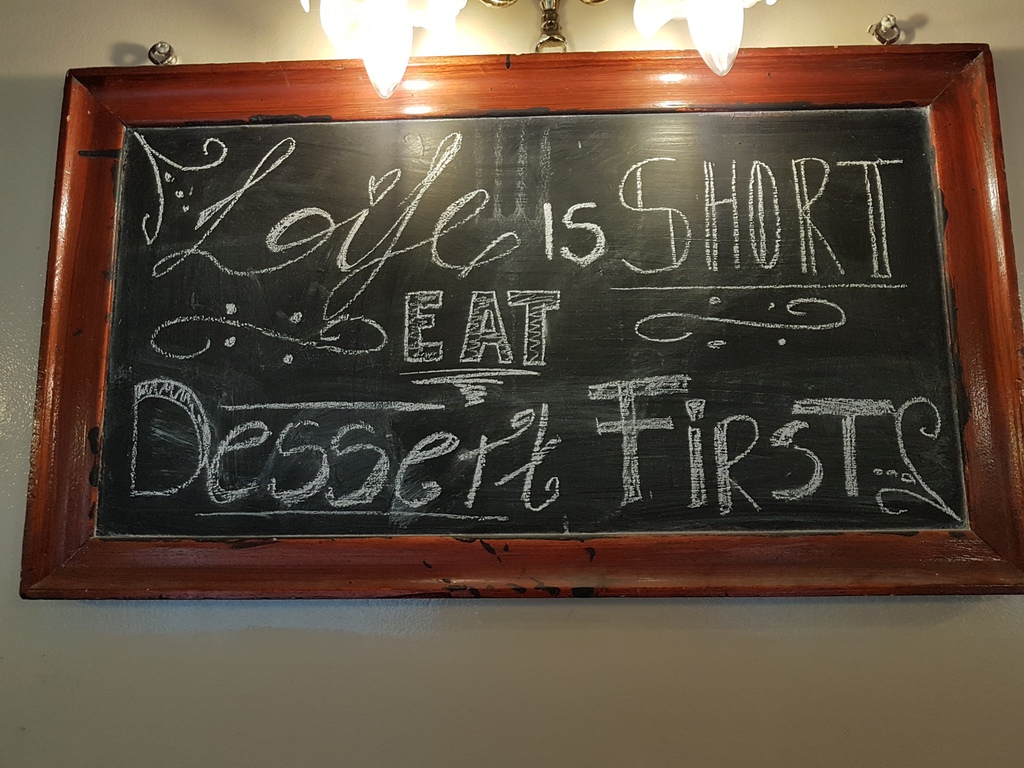 Life is SHORT
EAT
Dessert FiRST